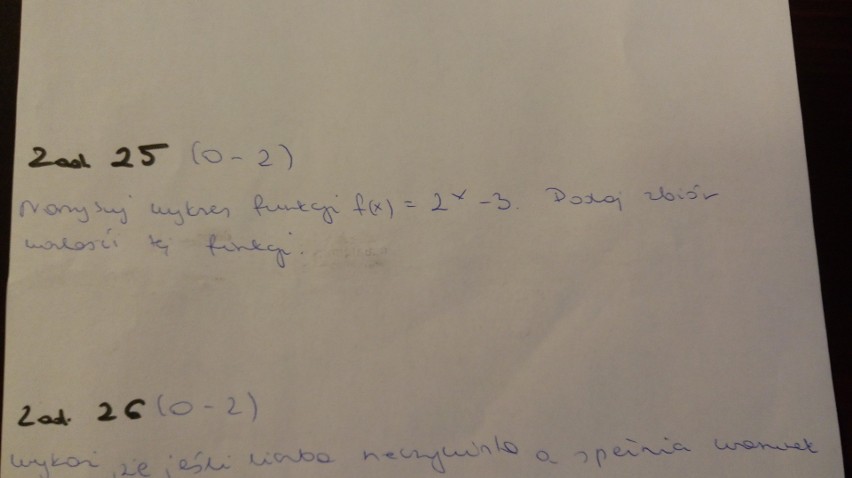 Zad 25 (0-2)
Narysuj wykres funkcji f(x) = 2^x - 3. Podaj zbiór
wartości tej funkcji.
Zad. 26 (0-2)
wykaż, że jeśli liczba rzeczywista a spełnia warunek